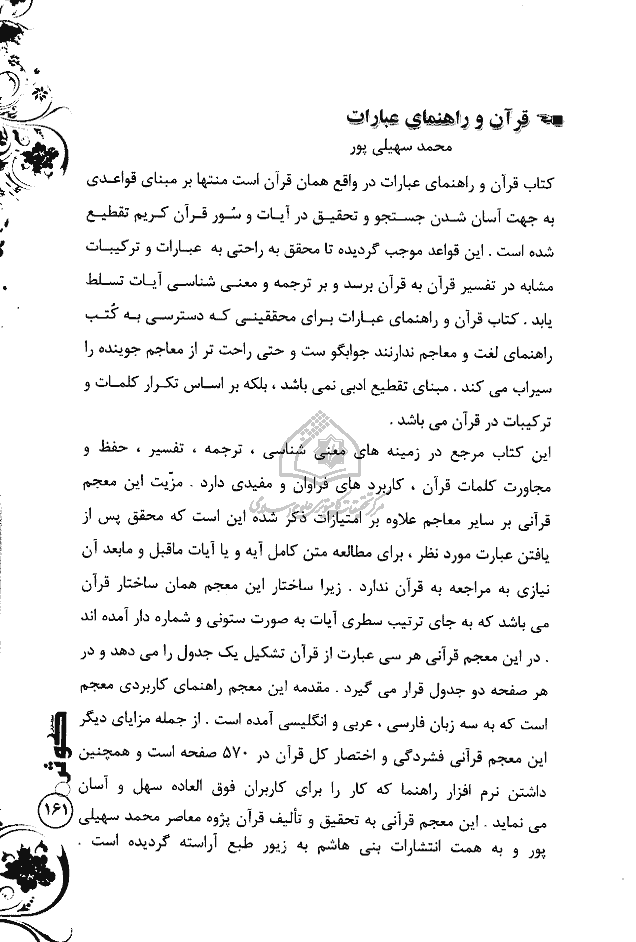 قرآن و راهنمای عبارات
محمد سهیلی پور
کتاب قرآن و راهنمای عبارات در واقع همان قرآن است منتها بر مبنای قواعدی
به جهت آسان شدن جستجو و تحقیق در آیات و سُور قرآن کریم تقطیع
شده است . این قواعد موجب گردیده تا محقق به راحتی به عبارات و ترکیبات
مشابه در تفسیر قرآن به قرآن برسد و بر ترجمه و معنی شناسی آیات تسلط
یابد . کتاب قرآن و راهنمای عبارات برای محققینی که دسترسی به کُتب
راهنمای لغت و معاجم ندارنند جوابگو ست و حتی راحت تر از معاجم جوینده را
سیراب می کند . مبنای تقطیع ادبی نمی باشد ، بلکه بر اساس تکرار کلمات و
ترکیبات در قرآن می باشد .
این کتاب مرجع در زمینه های معنی شناسی ، ترجمه ، تفسیر ، حفظ و
مجاورت کلمات قرآن ، کاربرد های فراوان و مفیدی دارد . مزیّت این معجم
قرآنی بر سایر معاجم علاوه بر امتیازات ذکر شده این است که محقق پس از
یافتن عبارت مورد نظر ، برای مطالعه متن کامل آیه و یا آیات ماقبل و مابعد آن
نیازی به مراجعه به قرآن ندارد . زیرا ساختار این معجم همان ساختار قرآن
می باشد که به جای ترتیب سطری آیات به صورت ستونی و شماره دار آمده اند
. در این معجم قرآنی هر سی عبارت از قرآن تشکیل یک جدول را می دهد و در
هر صفحه دو جدول قرار می گیرد . مقدمه این معجم راهنمای کاربردی معجم
است که به سه زبان فارسی ، عربی و انگلیسی آمده است . از جمله مزایای دیگر
این معجم قرآنی فشردگی و اختصار کل قرآن در ۵۷۰ صفحه است و همچنین
داشتن نرم افزار راهنما که کار را برای کاربران فوق العاده سهل و آسان
می نماید . این معجم قرآنی به تحقیق و تألیف قرآن پژوه معاصر محمد سهیلی
پور و به همت انتشارات بنی هاشم به زیور طبع آراسته گردیده است .
کوثر
۱۶۱